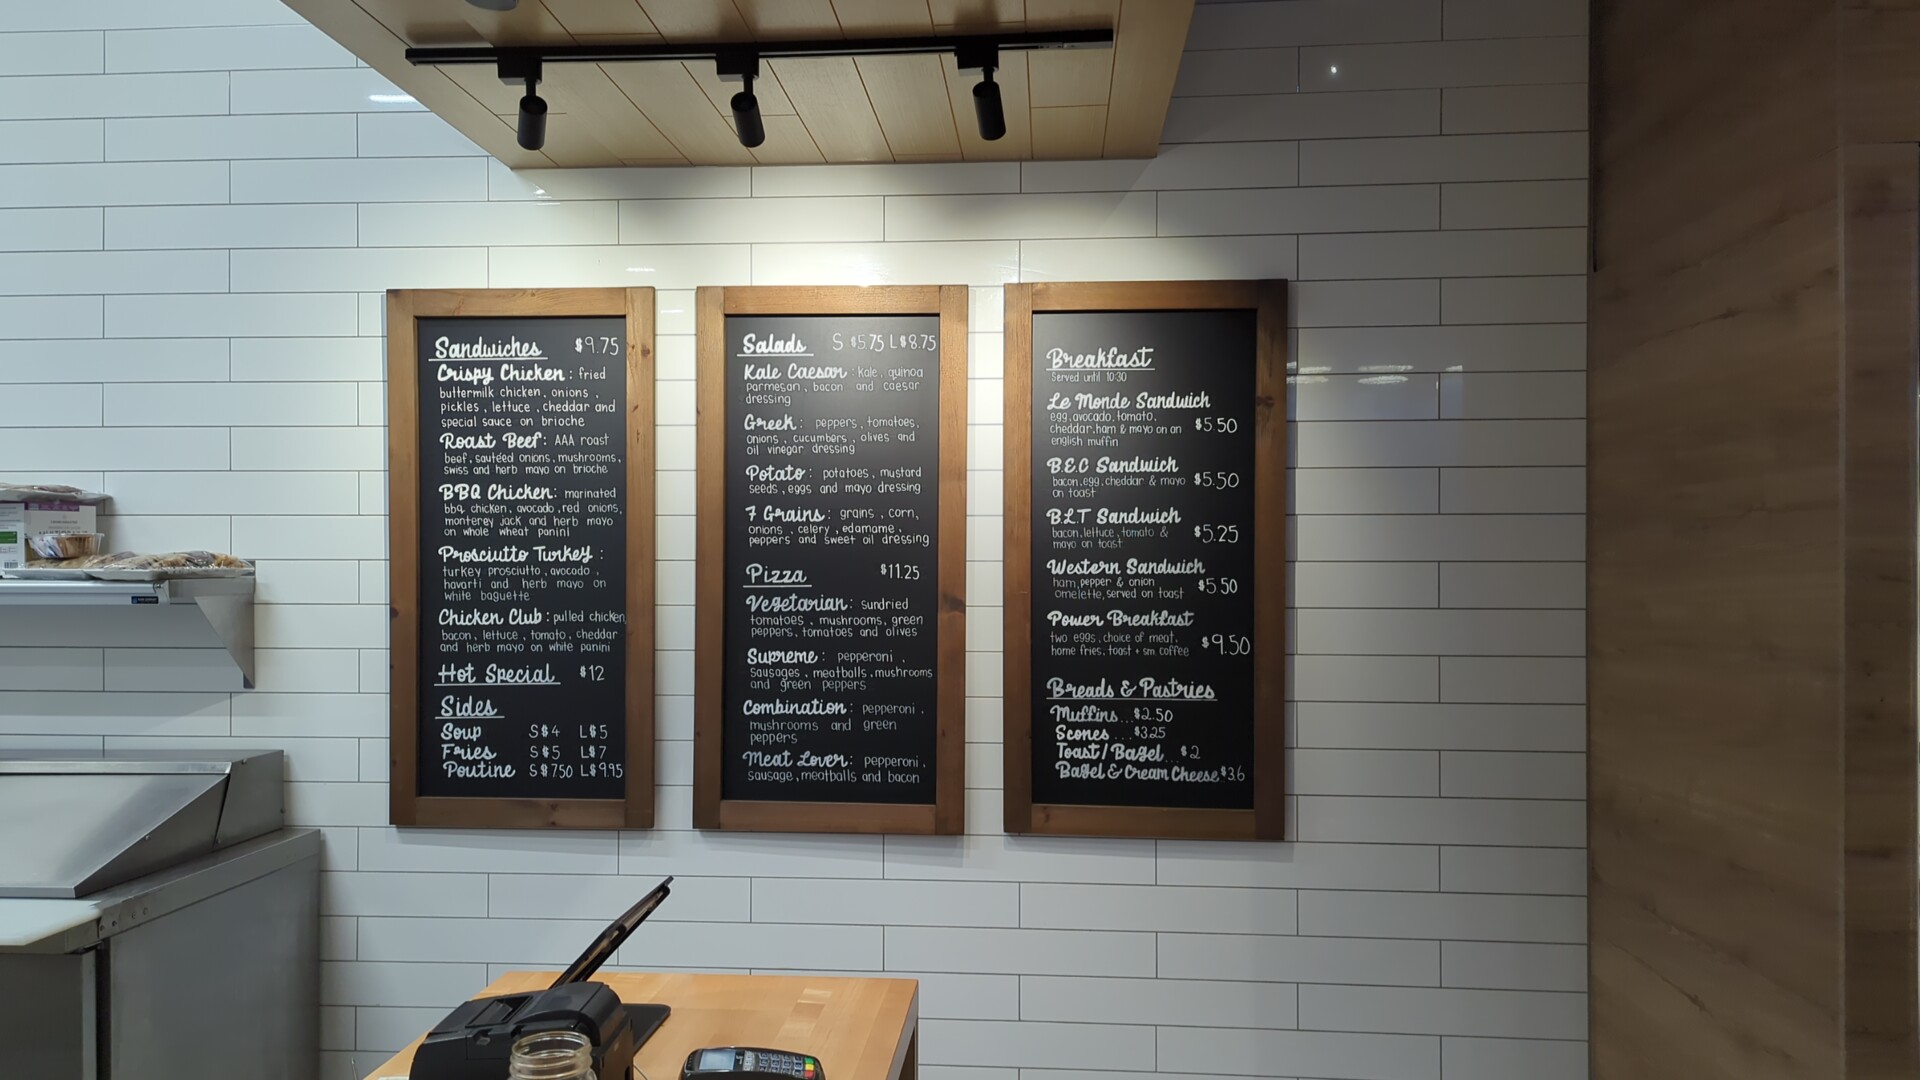 Sandwiches $9.75
Crispy Chicken: fried
buttermilk chicken, onions,
pickles, lettuce, cheddar and
special sauce on brioche
Roast Beef: AAA roast
beef, sautéed onions, mushrooms,
swiss and herb mayo on brioche
BBQ Chicken: marinated
bbq chicken, avocado, red onions,
monterey jack and herb mayo
on whole wheat panini
Prosciutto Turkey:
turkey prosciutto, avocado,
havarti and herb mayo on
white baguette
Chicken Club: pulled chicken,
bacon, lettuce, tomato, cheddar
and herb mayo on white panini
Hot Special $12
Sides
Soup S $4 L $5
Fries S $5 L $7
Poutine S $7.50 L $9.95
Salads S $5.75 L $8.75
Kale Caesar: Kale, quinoa
parmesan, bacon and caesar
dressing
Greek: peppers, tomatoes,
onions, cucumbers, olives and
oil vinegar dressing
Potato: potatoes, mustard
seeds, eggs and mayo dressing
7 Grains: grains, corn,
onions, celery, edamame,
peppers and sweet oil dressing
Pizza $11.25
Vegetarian: sundried
tomatoes, mushrooms, green
peppers, tomatoes and olives
Supreme: pepperoni,
sausages, meatballs, mushrooms
and green peppers
Combination: pepperoni,
mushrooms and green
peppers
Meat Lover: pepperoni,
sausage, meatballs and bacon
Breakfast
Served until 10:30
Le Monde Sandwich
egg, avocado, tomato,
cheddar, ham & mayo on an $5.50
english muffin
B.E.C Sandwich
bacon, egg, cheddar & mayo $5.50
on toast
B.L.T Sandwich
bacon, lettuce, tomato & $5.25
mayo on toast
Western Sandwich
ham, pepper & onion $5.50
omelette, served on toast
Power Breakfast
two eggs, choice of meat, $9.50
home fries, toast + sm coffee
Breads & Pastries
Muffins... $2.50
Scones ... $3.25
Toast/Bagel... $2
Bagel & Cream Cheese $3.6